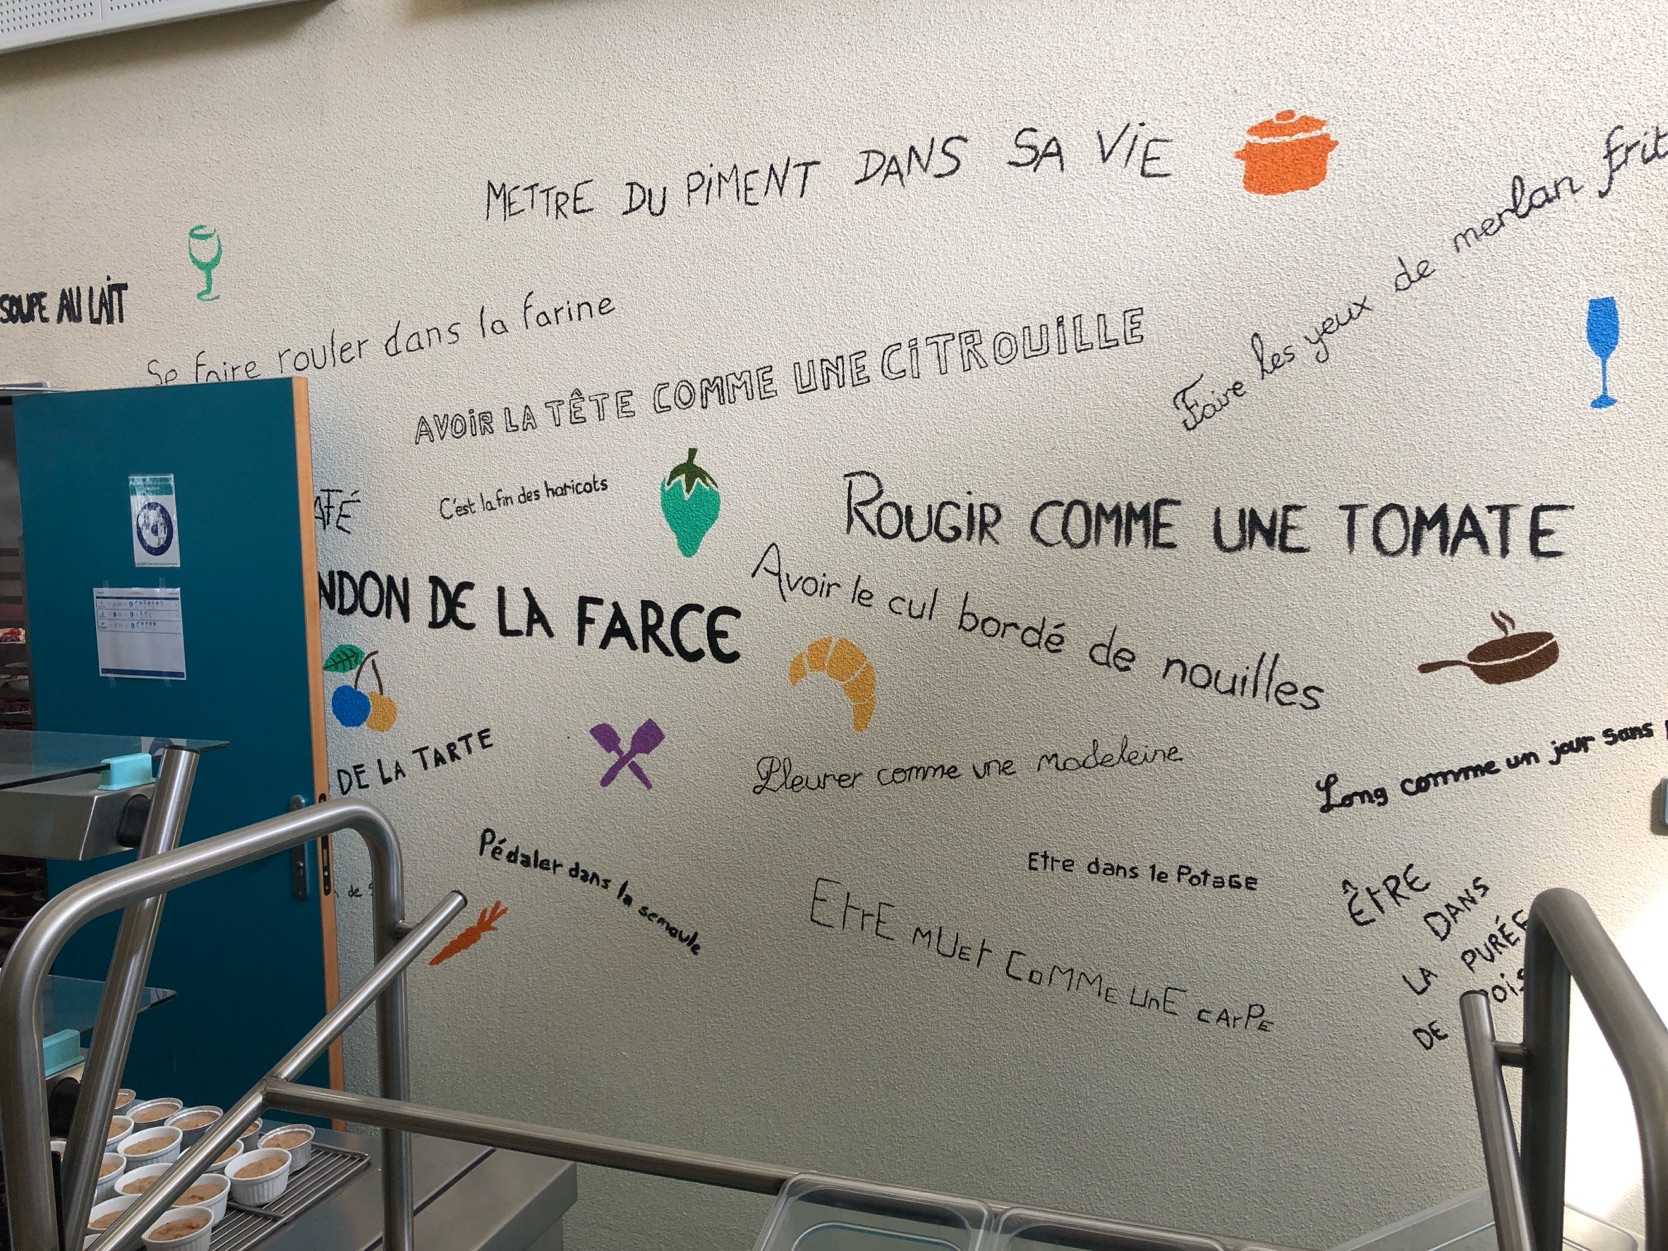 METTRE DU PIMENT DANS SA VIE
Faire les yeux de merlan frit
SOUPE AU LAIT
Se faire rouler dans la farine
AVOIR LA TÊTE COMME UNE CITROUILLE
C'est la fin des haricots
AFÉ
ROUGIR COMME UNE TOMATE
NDON DE LA FARCE
Avoir le cul bordé de nouilles
DE LA TARTE
Pleurer comme une madeleine
Long comme un jour sans
Pédaler dans la semoule
Etre dans le Potage
ÊTRE
DANS
LA PURÉE
DE POIS
EtrE mUEt CoMME UnE cArPE
de